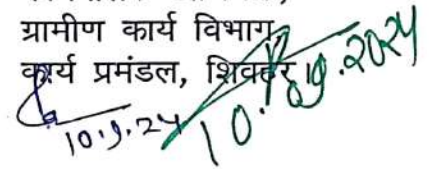 ग्रामीण कार्य विभाग,
कार्य प्रमंडल, शिवहर।
10.9.24
10.09.2024